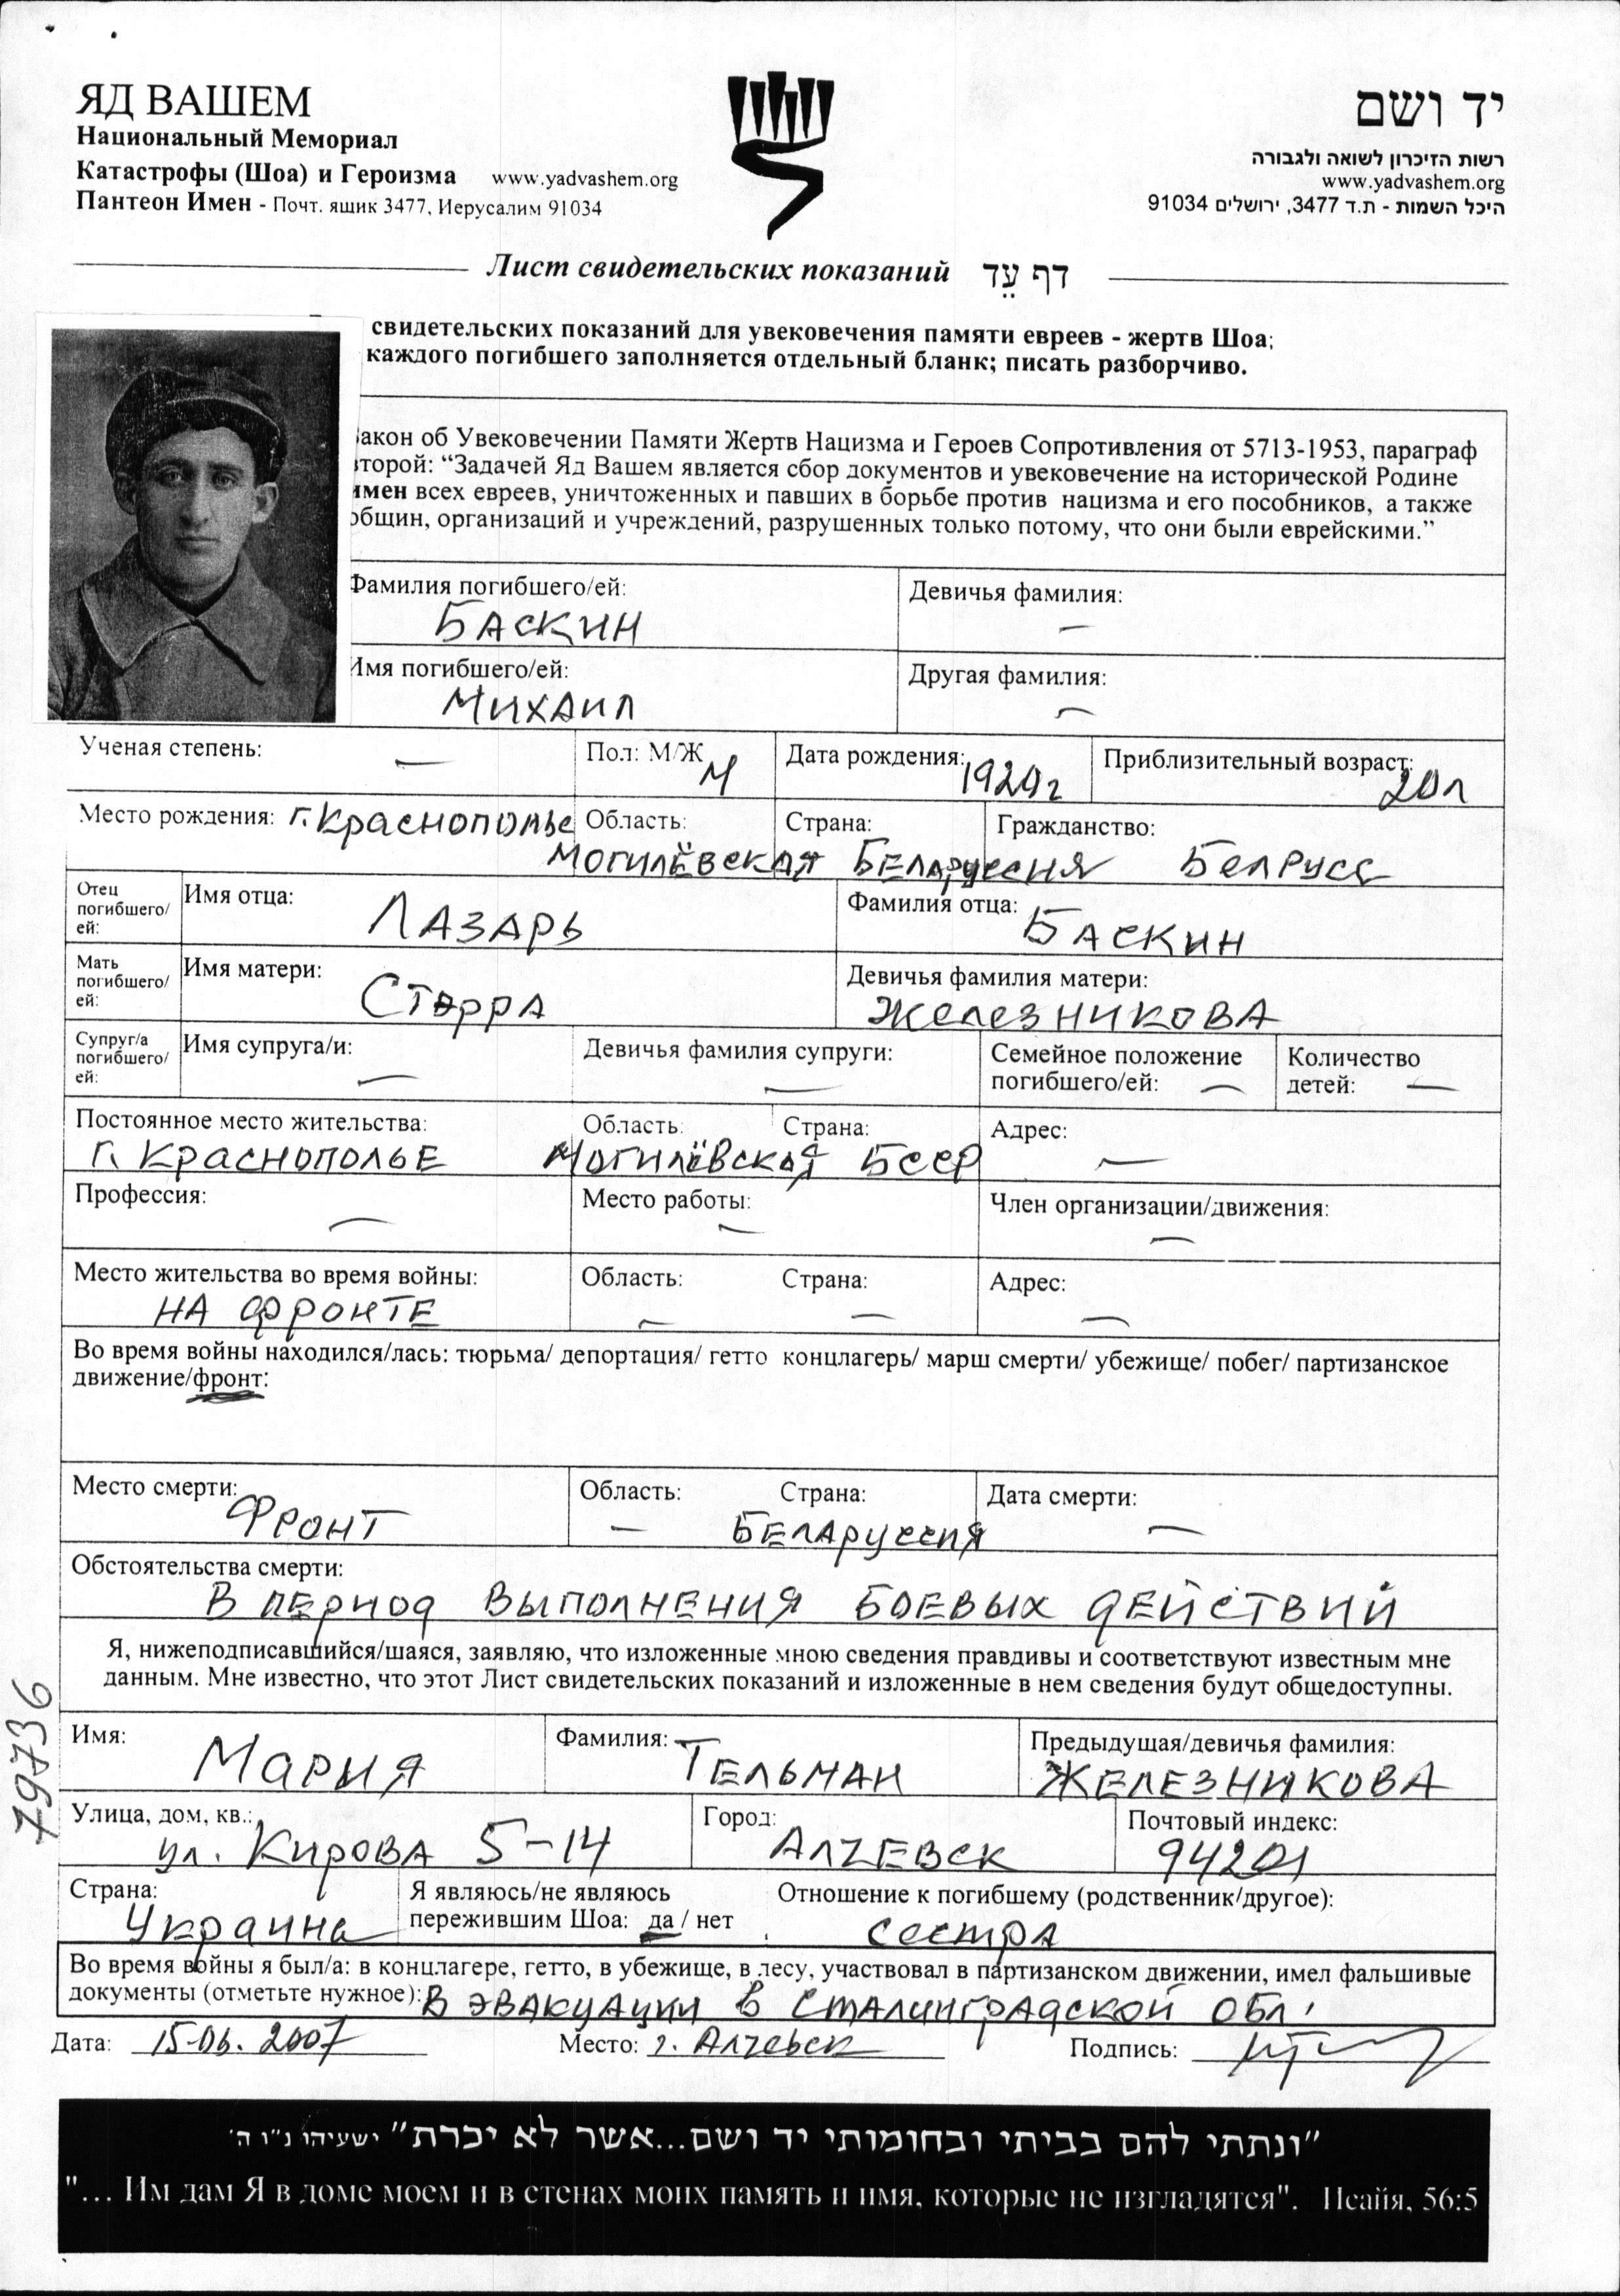 ЯД ВАШЕМ
Национальный Мемориал
Катастрофы (Шоа) и Героизма www.yadvashem.org
Пантеон Имен - Почт. ящик 3477, Иерусалим 91034
יד ושם
רשות הזיכרון לשואה ולגבורה
www.yadvashem.org
היכל השמות - ת.ד 3477, ירושלים 91034
Лист свидетельских показаний דף עֵד
свидетельских показаний для увековечения памяти евреев - жертв Шоа;
каждого погибшего заполняется отдельный бланк; писать разборчиво.
акон об Увековечении Памяти Жертв Нацизма и Героев Сопротивления от 5713-1953, параграф
второй: “Задачей Яд Вашем является сбор документов и увековечение на исторической Родине
имен всех евреев, уничтоженных и павших в борьбе против нацизма и его пособников, а также
общин, организаций и учреждений, разрушенных только потому, что они были еврейскими.”
Фамилия погибшего/ей: Девичья фамилия:
БАСКИН —
Имя погибшего/ей: Другая фамилия:
МИХАИЛ —
Ученая степень: — Пол: М/Ж М Дата рождения: 1920г Приблизительный возраст: 20л
Место рождения: г. Краснополье Область: Страна: Гражданство:
МОГИЛЁВСКАЯ БЕЛАРУССИЯ БЕЛРУСС
Отец погибшего/ей: Имя отца: ЛАЗАРЬ Фамилия отца: БАСКИН
Мать погибшего/ей: Имя матери: СТЭРРА Девичья фамилия матери: ЖЕЛЕЗНИКОВА
Супруг/а погибшего/ей: Имя супруга/и: — Девичья фамилия супруги: — Семейное положение погибшего/ей: — Количество детей: —
Постоянное место жительства: Область: Страна: Адрес:
г. КРАСНОПОЛЬЕ МОГИЛЁВСКАЯ БССР —
Профессия: — Место работы: — Член организации/движения: —
Место жительства во время войны: Область: Страна: Адрес:
НА ФРОНТЕ — — —
Во время войны находился/лась: тюрьма/ депортация/ гетто концлагерь/ марш смерти/ убежище/ побег/ партизанское
движение/фронт:
Место смерти: Область: Страна: Дата смерти:
ФРОНТ — БЕЛАРУССИЯ —
Обстоятельства смерти:
В ПЕРИОД ВЫПОЛНЕНИЯ БОЕВЫХ ДЕЙСТВИЙ
Я, нижеподписавшийся/шаяся, заявляю, что изложенные мною сведения правдивы и соответствуют известным мне
данным. Мне известно, что этот Лист свидетельских показаний и изложенные в нем сведения будут общедоступны.
79736
Имя: Фамилия: Предыдущая/девичья фамилия:
МАРИЯ ТЕЛЬМАН ЖЕЛЕЗНИКОВА
Улица, дом, кв.: Город: Почтовый индекс:
ул. КИРОВА 5-14 АЛЧЕВСК 94201
Страна: Я являюсь/не являюсь Отношение к погибшему (родственник/другое):
Украина пережившим Шоа: да / нет сестра
Во время войны я был/а: в концлагере, гетто, в убежище, в лесу, участвовал в партизанском движении, имел фальшивые
документы (отметьте нужное): В ЭВАКУАЦИИ В СТАЛИНГРАДСКОЙ ОБЛ.
Дата: 15-06. 2007 Место: г. Алчевск Подпись:
"ונתתי להם בביתי ובחומותי יד ושם...אשר לא יכרת" ישעיהו נ"ו ה'
"... Им дам Я в доме моем и в стенах моих память и имя, которые не изгладятся". Исайя, 56:5